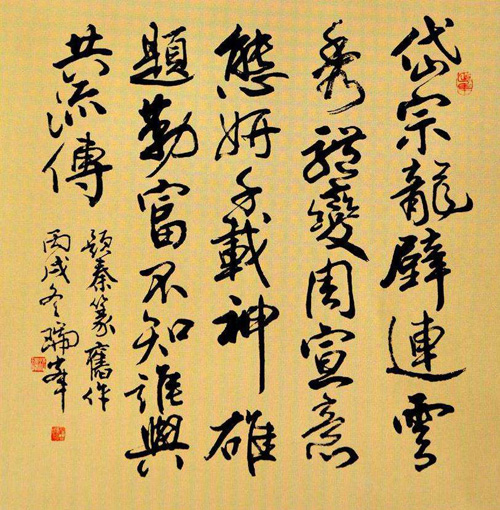 岱宗龍壁連雲
秀體變周宣意
態妍千載神雄
題勒富不知誰與
共流傳
題秦篆舊作
丙戌冬瑞峯